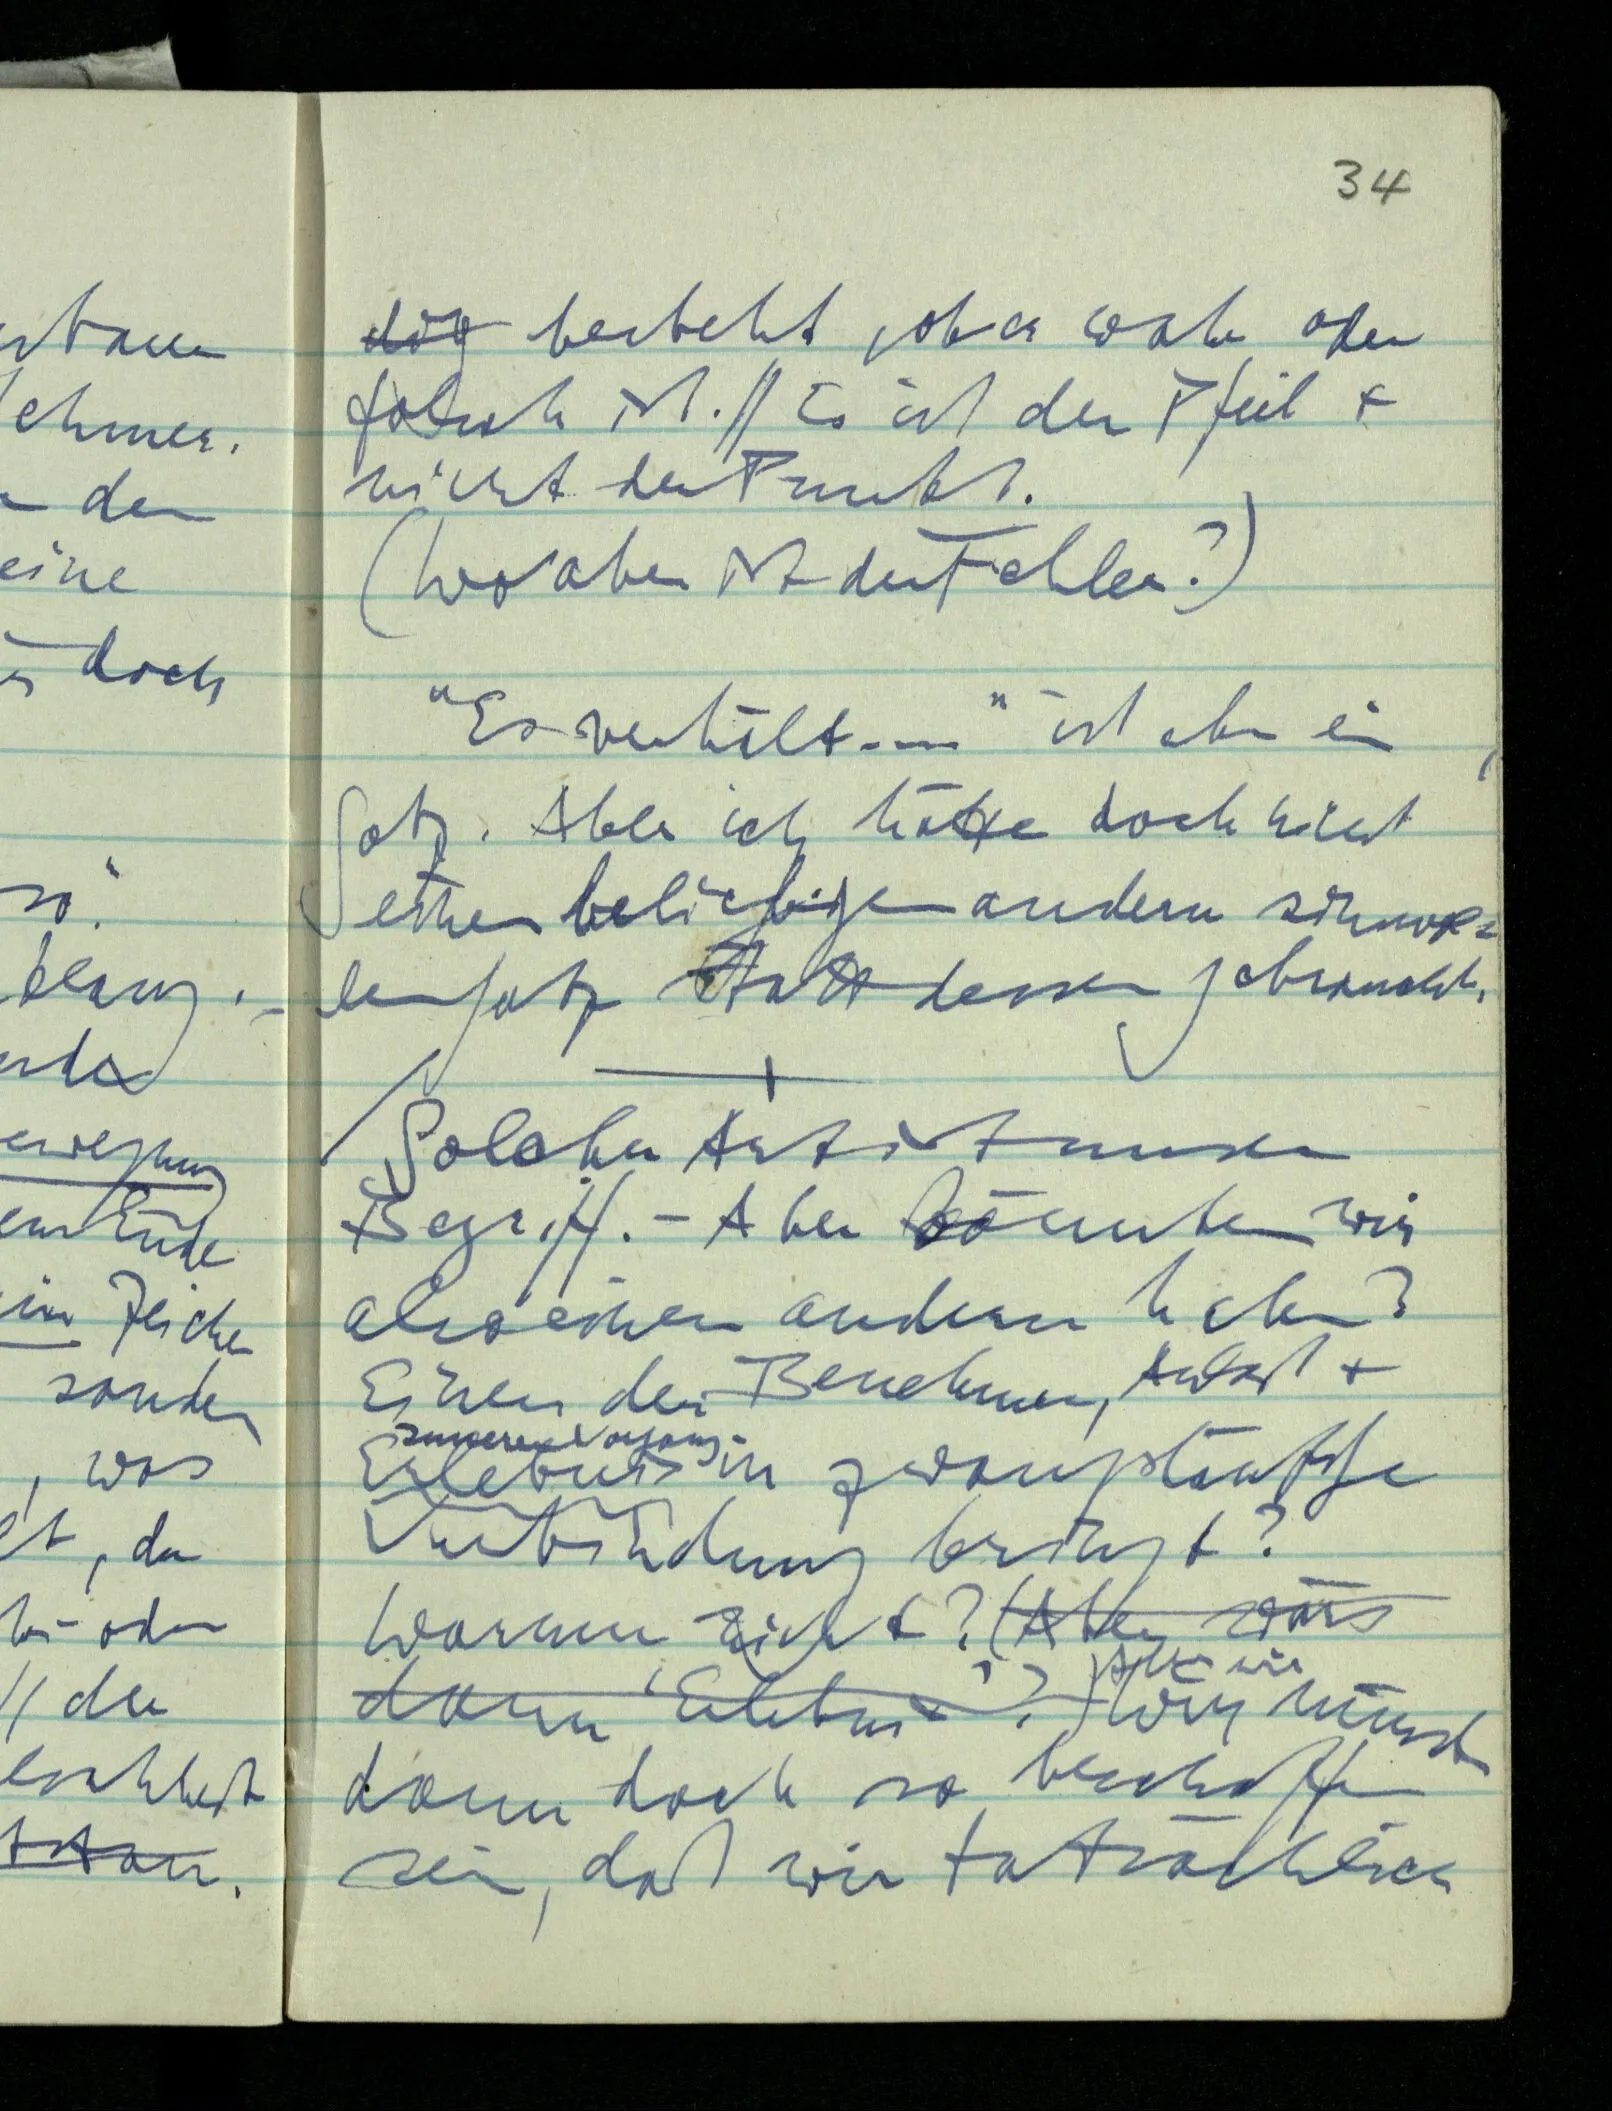 34
stauen
ehmer.
den
eine
doch
so".
klang. –
Ende
ein Zeichen
sondern
, was
, da
oder
// der
dig besteht, ob er wahr oder
falsch ist. // Es ist der Pfeil +
nicht der Punkt.
(Wo aber ist der Fehler?)
"Es verhält ...." ist aber ein
Satz. Aber ich hätte doch nicht
einen beliebigen andern sinnvol-
len Satz statt dessen gebraucht.
Solcher Art ist unser
Begriff. – Aber könnten wir
also einen andern haben?
Einen der Benehmen, Anlaß +
inneren Vorgang
Erlebnis in zwangsläufige
Verbindung bringt?
Warum nicht? (Aber wärs
dann 'Erlebnis'?)
Aber wir
Wir müßten
dann doch so beschaffen
sein, daß wir tatsächlich